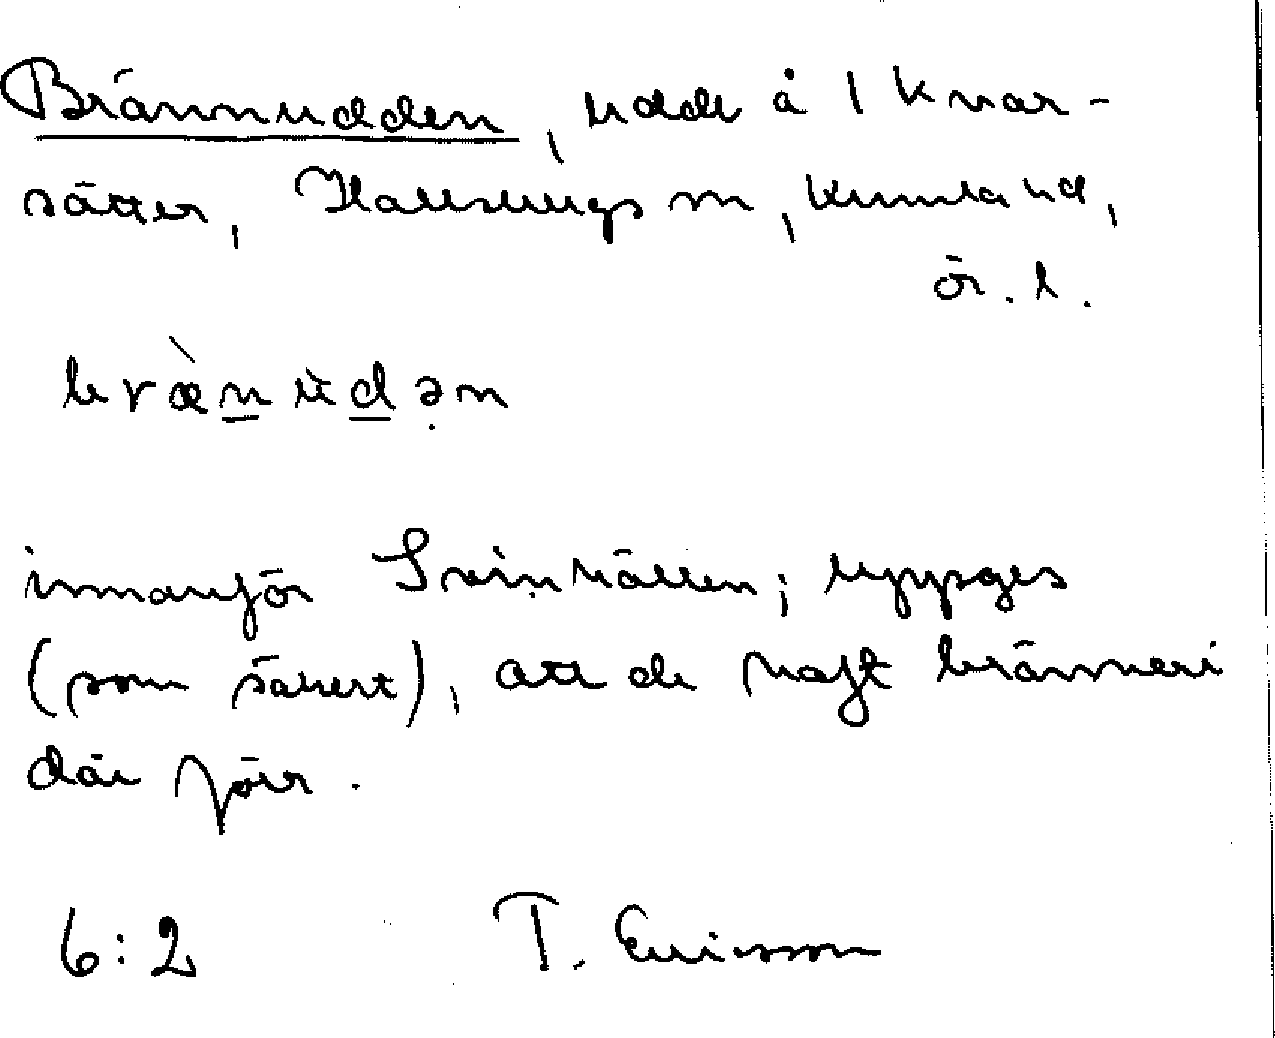 Brännudden, udde å 1 Kvar-
sätter, Hallsbergs sn, Kumla hd,
ör. l.
brænudən
innanför Svinhällen; uppges
(som säkert), att de haft bränneri
där förr.
6:2 T. Ericsson